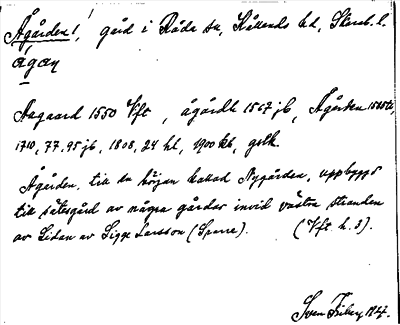 Ågården 1, gård i Råda sn, Kållands hd, Skarab. l.
ågan
Aagaard 1550 Vft, ågårdh 1567 jb, Ågården 1565 tl,
1710, 77. 95 jb, 1808, 24 hl, 1900 kb, gslk.
Ågården, till en början kallad Nygården, uppbyggd
till sätesgård av några gårdar invid västra stranden
av Lidan av Sigge Larsson (Sparre). (Vft h. 3).
Sven Friberg 1927.